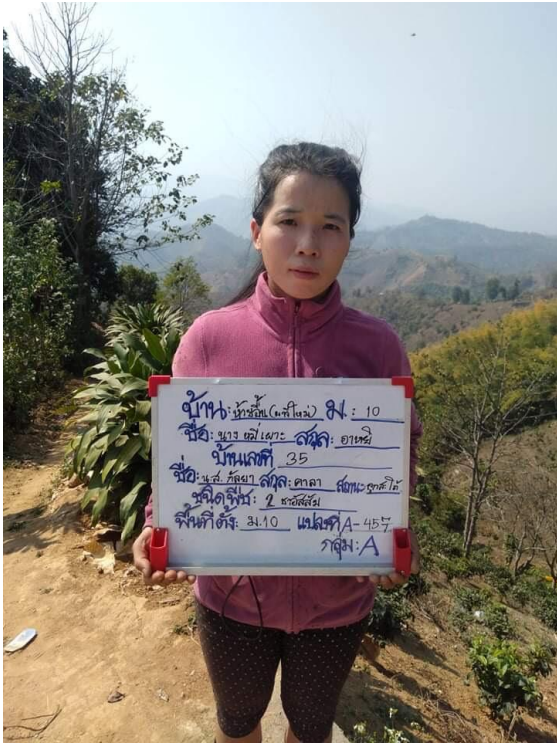 บ้าน: ห้วยอื้น(ผาใหม่) ม.: 10
ชื่อ: นาง หมี่เผาะ สกุล: อาหยิ
บ้านเลขที่ 35
ชื่อ: น.ส. กัลยา สกุล: คาลา สถานะ:
ชนิดพืช: 2 ชาอัสสัม
พื้นที่ตั้ง: ม.10 แปลงที่ A-457
กลุ่ม: A